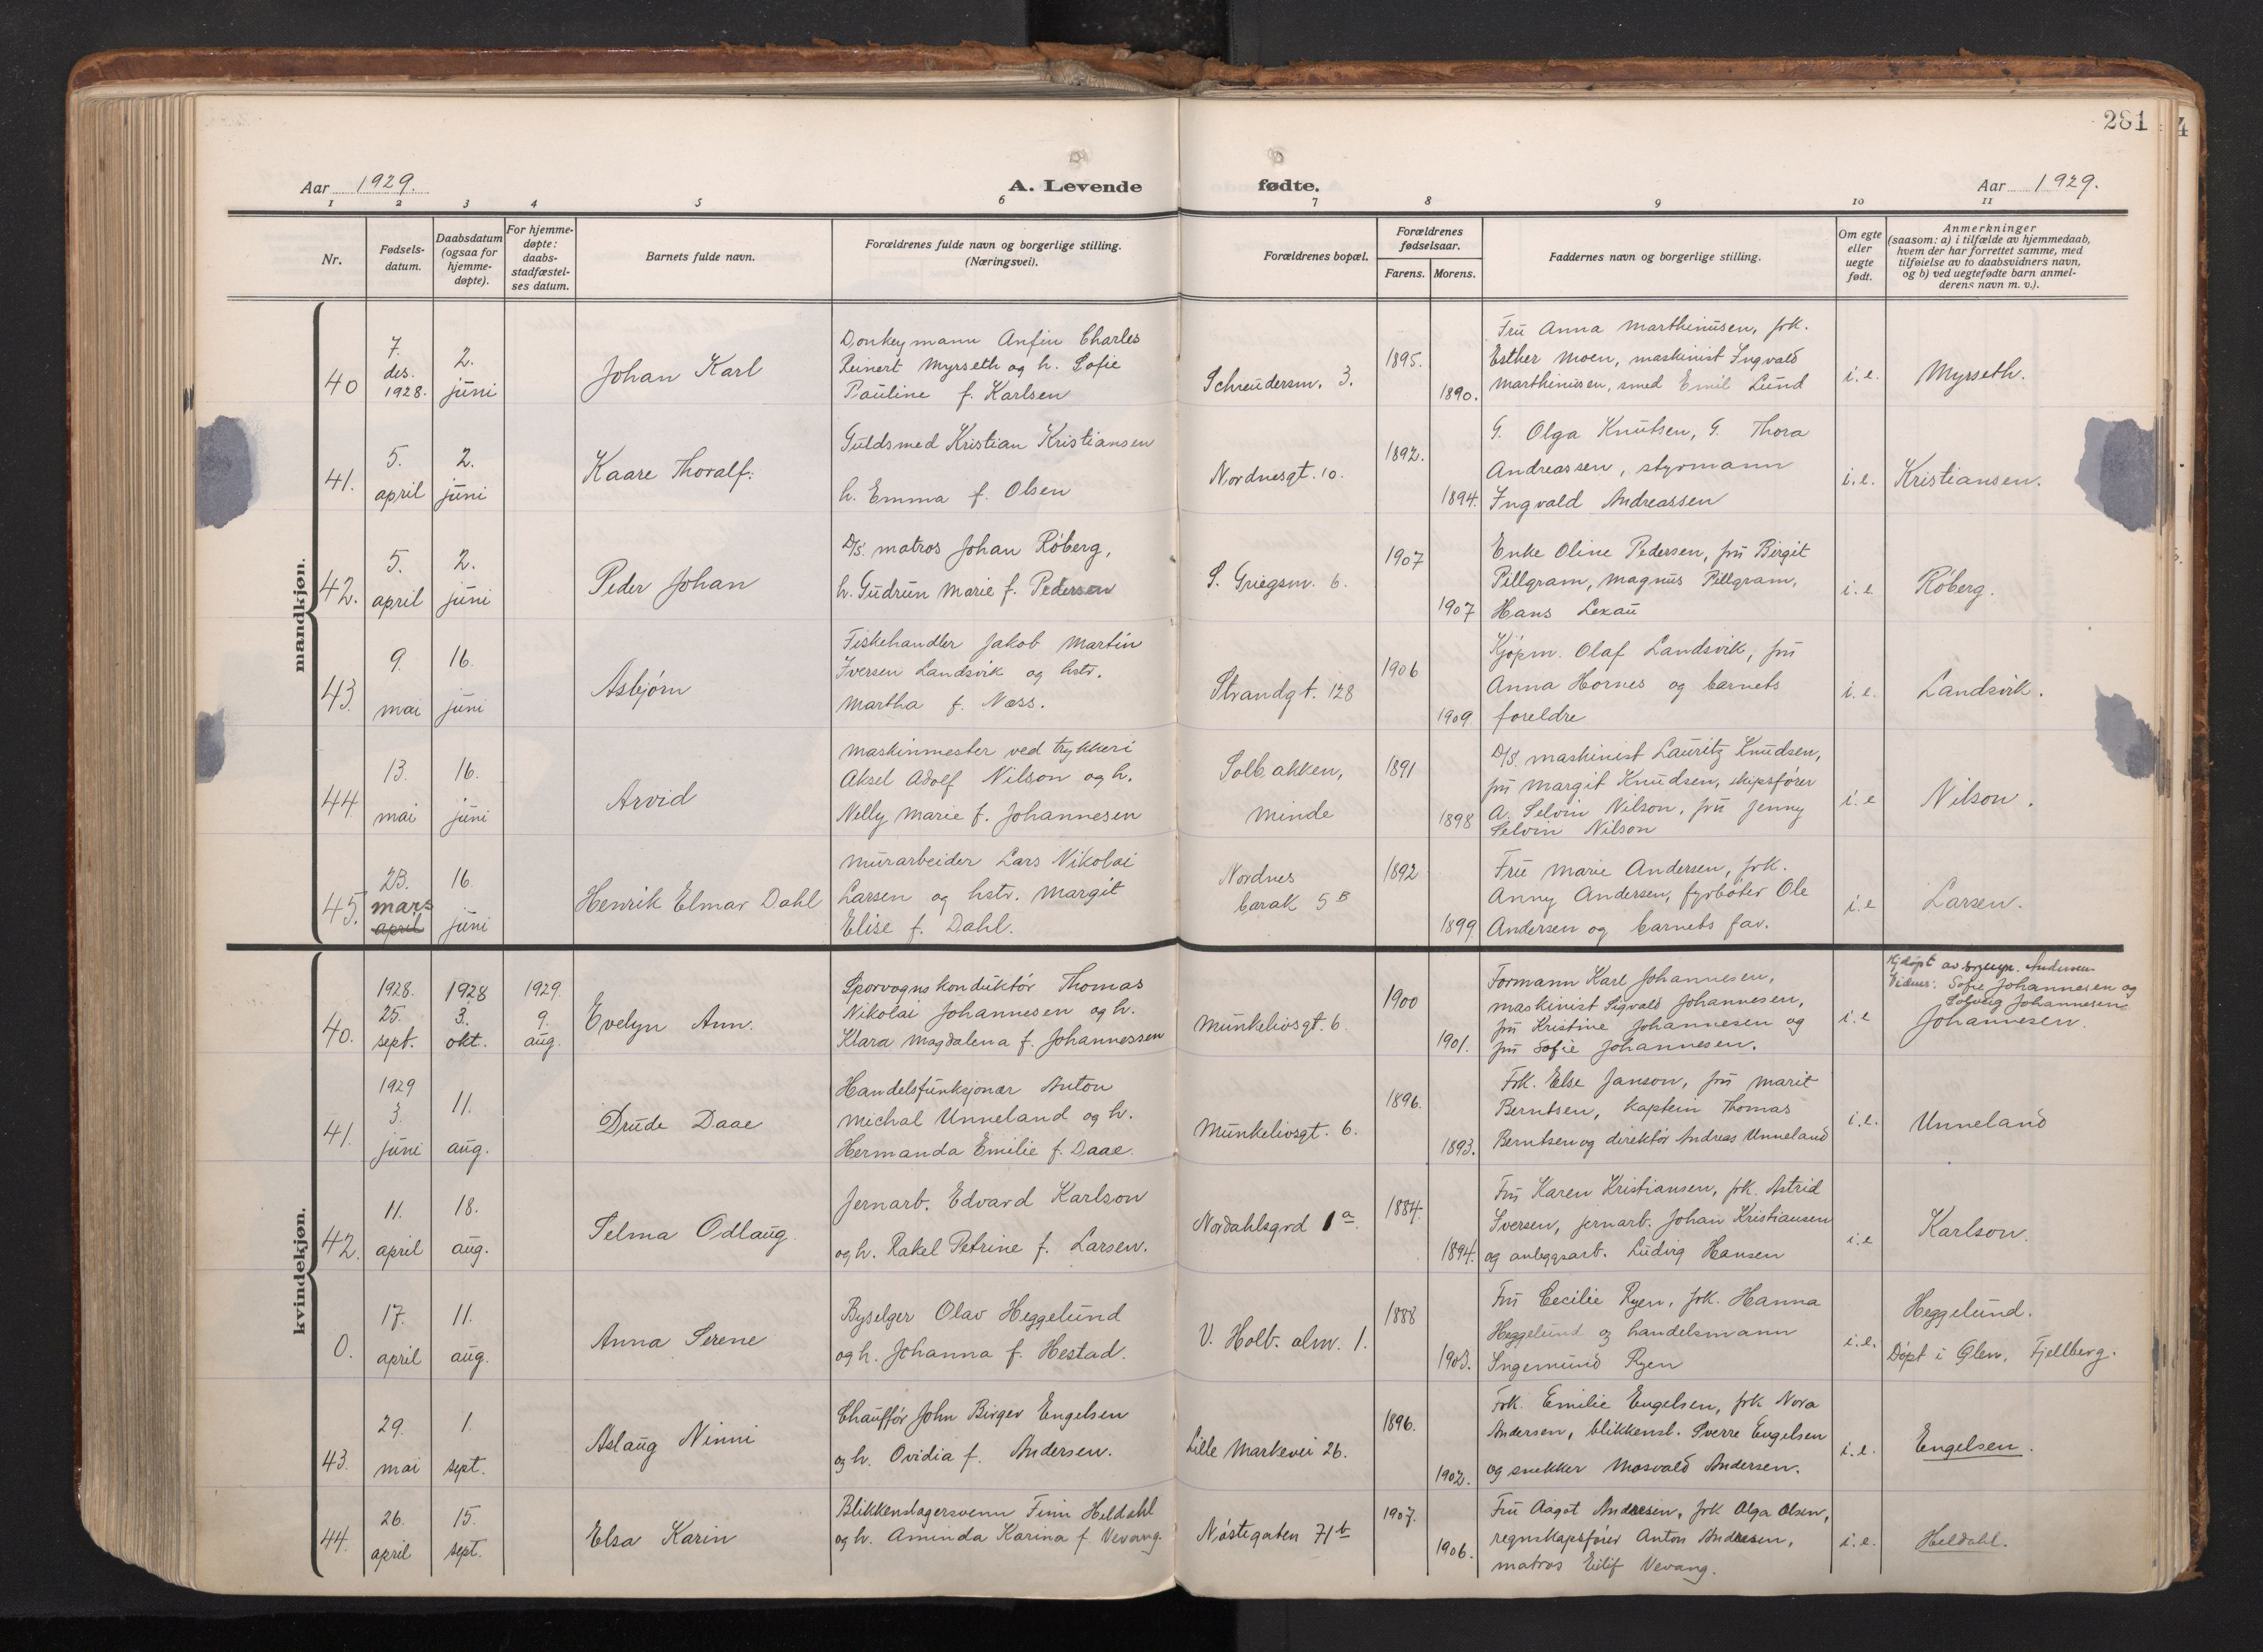 281
4
Aar 1929.
A. Levende
fødte.
Aar 1929.
1 2 3 4 5 6 7 8 9 10 11
Nr.
Fødsels-
datum.
Daabsdatum
(ogsaa for
hjemme-
døpte).
For hjemme-
døpte:
daabs-
stadfæstel-
ses datum.
Barnets fulde navn.
Forældrenes fulde navn og borgerlige stilling.
(Næringsvei).
Forældrenes bopæl.
Forældrenes
fødselsaar.
Farens. Morens.
Faddernes navn og borgerlige stilling.
Om egte
eller
uegte
født.
Anmerkninger
(saasom: a) i tilfælde av hjemmedaab,
hvem der har forrettet samme, med
tilføielse av to daabsvidners navn,
og b) ved uegtefødte barn anmel-
derens navn m. v.).
mandkjøn.
40
7.
des.
1928.
2.
juni
Johan Karl
Donkeymann Anfin Charles
Reinert Myrseth og h. Sofie
Pauline f. Karlsen
Schreudersm. 3.
1895.
1890.
Fru Anna Marthinusen, frk.
Esther Moen, maskinist Ingvald
Marthinusen, smed Emil Lund
i.e.
Myrseth.
41.
5.
april
2.
juni
Kaare Thoralf.
Guldsmed Kristian Kristiansen
h. Emma f. Olsen
Nordnesgt. 10.
1892.
1894.
G. Olga Knutsen, G. Thora
Andreassen, styrmann
Ingvald Andreassen
i.e.
Kristiansen.
42.
5.
april
2.
juni
Peder Johan
D/S. matros Johan Røberg,
h. Gudrun Marie f. Pedersen
S. Griegsm. 6.
1907
1907
Enke Oline Pedersen, fru Birgit
Pillgram, Magnus Pillgram,
Hans Lexau
i.e
Røberg.
43.
9.
mai
16.
juni
Asbjørn
Fiskehandler Jakob Martin
Iversen Landsvik og hstr.
Martha f. Næss.
Strandgt. 128
1906
1909.
Kjøpm. Olaf Landsvik, fru
Anna Hornes og barnets
foreldre
i.e.
Landsvik.
44.
13.
mai
16.
juni
Arvid
Maskinmester ved trykkeri
Aksel Adolf Nilson og h.
Nelly Marie f. Johannesen
Solbakken,
Minde
1891
1898
D/S. maskinist Lauritz Knudsen,
fru Margit Knudsen, skipsfører
A. Selvin Nilson, fru Jenny
Selvin Nilson
i.e
Nilson.
45.
23.
mars
april
16.
juni
Henrik Elmar Dahl
Murarbeider Lars Nikolai
Larsen og hstr. Margit
Elise f. Dahl.
Nordnes
barak 5 B
1892
1899.
Fru Marie Andersen, frk.
Anny Andersen, fyrbøter Ole
Andersen og barnets far.
i.e
Larsen.
kvindekjøn.
40.
1928.
25.
sept.
1928
3.
okt.
1929.
9.
aug.
Evelyn Ann.
Sporvognskonduktør Thomas
Nikolai Johannesen og h.
Klara Magdalena f. Johannessen
Munkelivsgt. 6.
1900
1901.
Formann Karl Johannesen,
maskinist Sigvald Johannesen,
fru Kristine Johannesen og
fru Sofie Johannesen.
i.e
Hj.døpt av Andersen
Vidner: Sofie Johannesen og
Solveig Johannesen
Johannesen.
41.
1929
3.
juni
11.
aug.
Drude Daae
Handelsfunksjonær Anton
Michal Unneland og h.
Hermanda Emilie f. Daae.
Munkelivsgt. 6.
1896.
1893.
Frk. Else Janson, fru Marit
Berntsen, kaptein Thomas
Berntsen og direktør Andreas Unneland
i.e.
Unneland
42.
11.
april
18.
aug.
Selma Odlaug.
Jernarb. Edvard Karlson
og h. Rakel Petrine f. Larsen.
Nordahlsgrd 1 a.
1884.
1894.
Fru Karen Kristiansen, frk. Astrid
Iversen, jernarb. Johan Kristiansen
og anleggsarb. Ludvig Hansen
i.e
Karlson.
0.
17.
april
11.
aug.
Anna Serene
Byselger Olav Heggelund
og h. Johanna f. Hestad.
V. Holb. alm. 1.
1888
1903.
Fru Cecilie Ryen, frk. Hanna
Heggelund og handelsmann
Ingemund Ryen
i.e.
Heggelund.
Døpt i Ølen, Fjellberg.
43.
29.
mai
1.
sept.
Aslaug Ninni
Chauffør John Birger Engelsen
og h. Ovidia f. Andersen.
Lille Markevei 26.
1896.
1902.
Frk. Emilie Engelsen, frk Nora
Andersen, blikkensl. Sverre Engelsen
og snekker Mosvald Andersen.
i.e.
Engelsen.
44.
26.
april
15.
sept.
Elsa Karin
Blikkenslagersvenn Finn Heldahl
og h. Aminda Karina f. Vevang.
Nøstegaten 71 b
1907.
1906.
Fru Aagot Andresen, frk Olga Olsen,
regnskapsfører Anton Andresen,
matros Eilif Vevang.
i.e.
Heldahl.